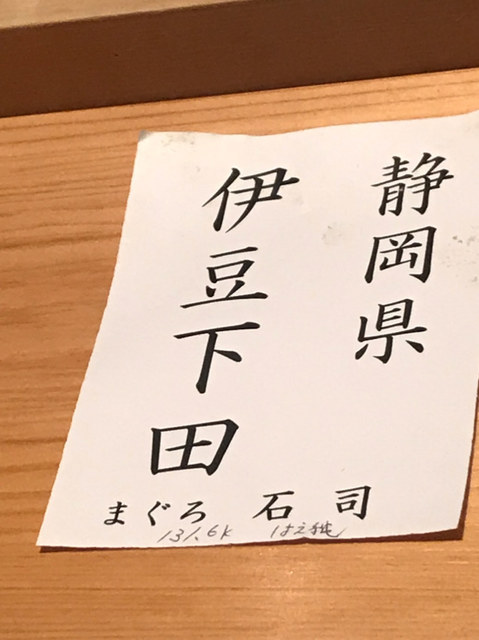 静岡県
伊豆下田
まぐろ 石司
131.6K はえ縄